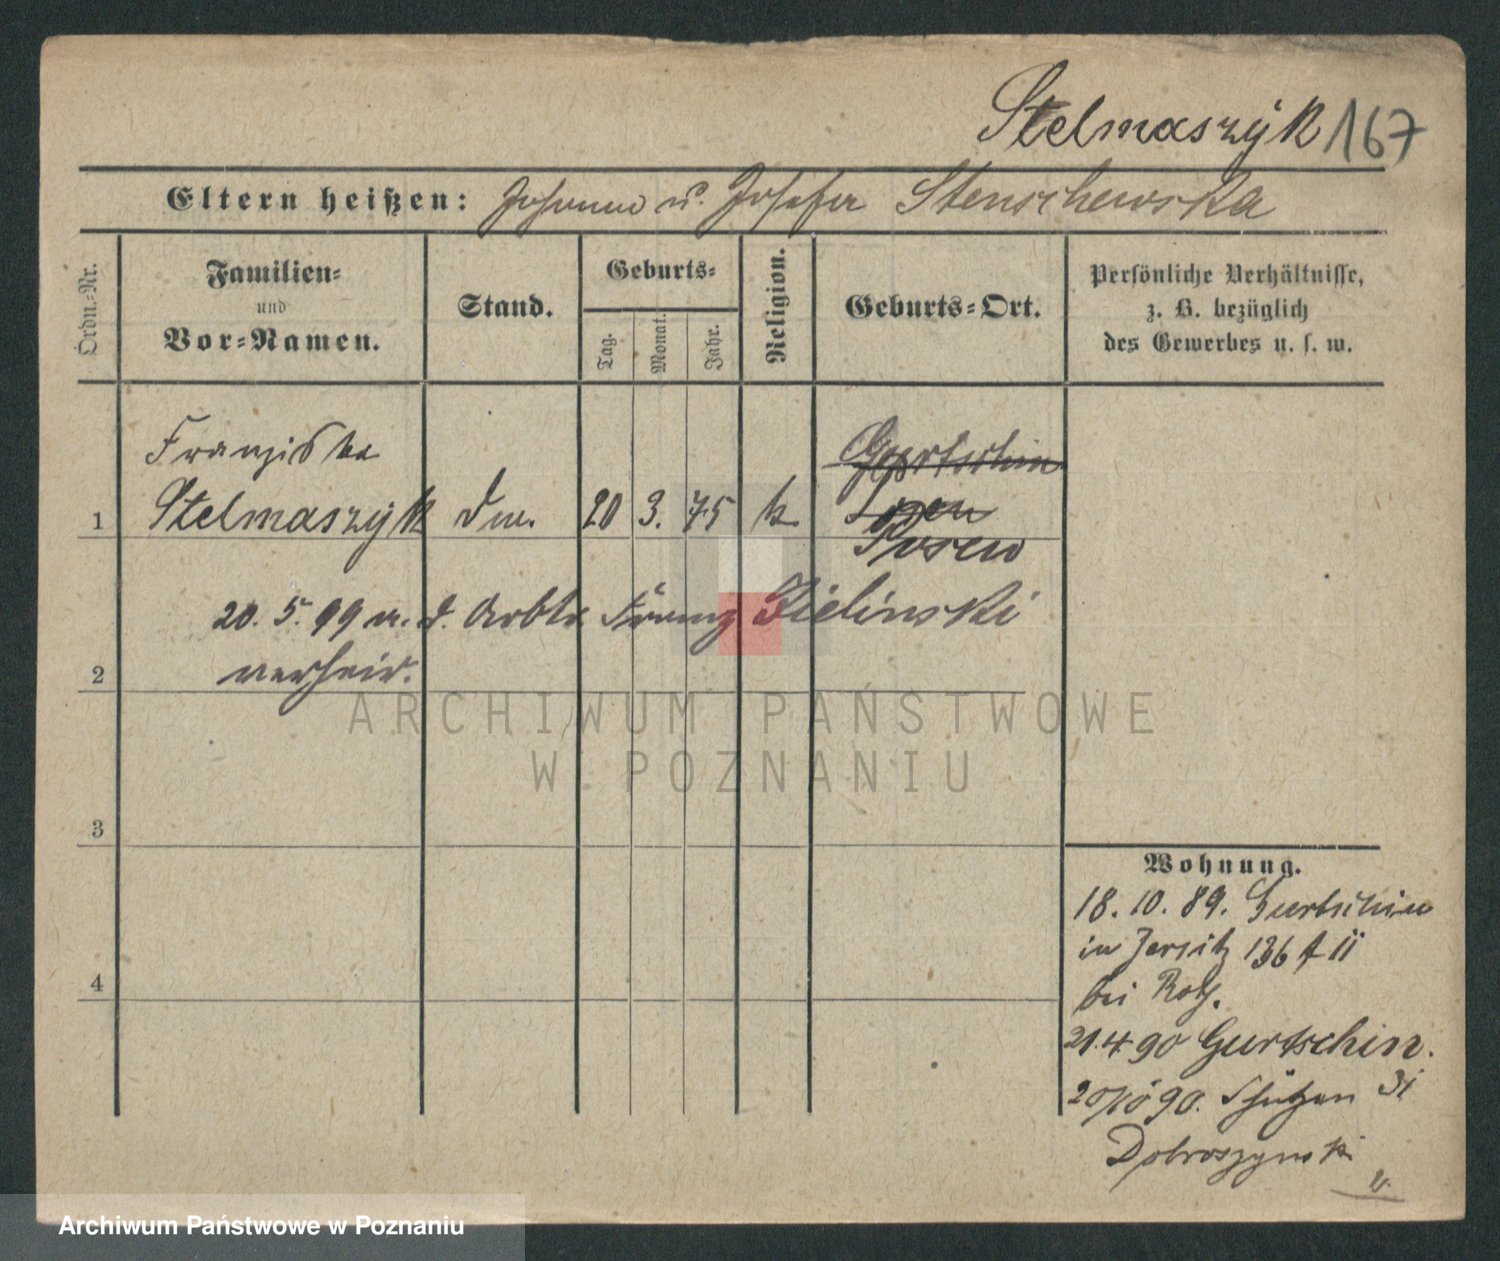 Stelmaszyk 167
Eltern heißen: Johann u. Josefa Stenschewska
Ordn.-Nr.
Familien-
und
Vor-Namen.
Stand.
Geburts-
Tag.
Monat.
Jahr.
Religion.
Geburts-Ort.
Persönliche Verhältnisse,
z. B. bezüglich
des Gewerbes u. s. w.
Franziska
1 Stelmaszyk 20 3. 75 k.
Gurtschin
Posen
20. 5. 99 m. d. Arbtr Franz Zielinski
2 verheir.
3
4
Wohnung.
18. 10. 89. Gurtschin
in Jersitz 136
bei
21.4.90 Gurtschin.
90. Schützen 31
Dobroszynski
ARCHIWUM PAŃSTWOWE
W POZNANIU
Archiwum Państwowe w Poznaniu